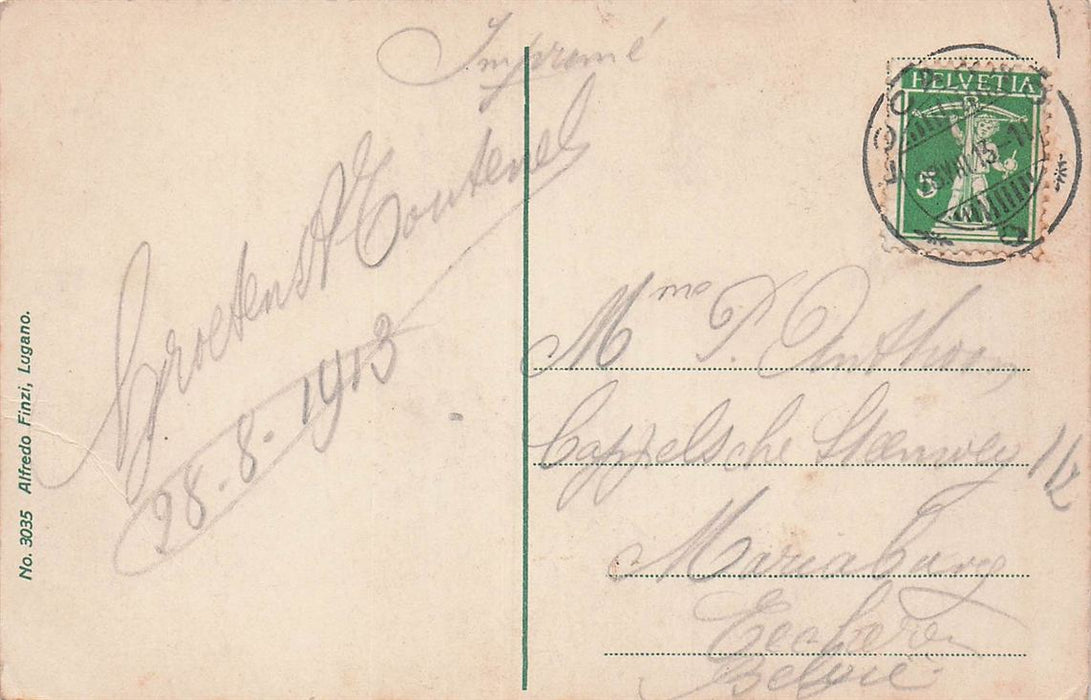 Imprimé
Groeten
28-8-1913
No. 3035 Alfredo Finzi, Lugano.
HELVETIA
5
Mme P. Anthoon
Cappelsche Steenweg 112
Mariaburg
Eeckeren
België